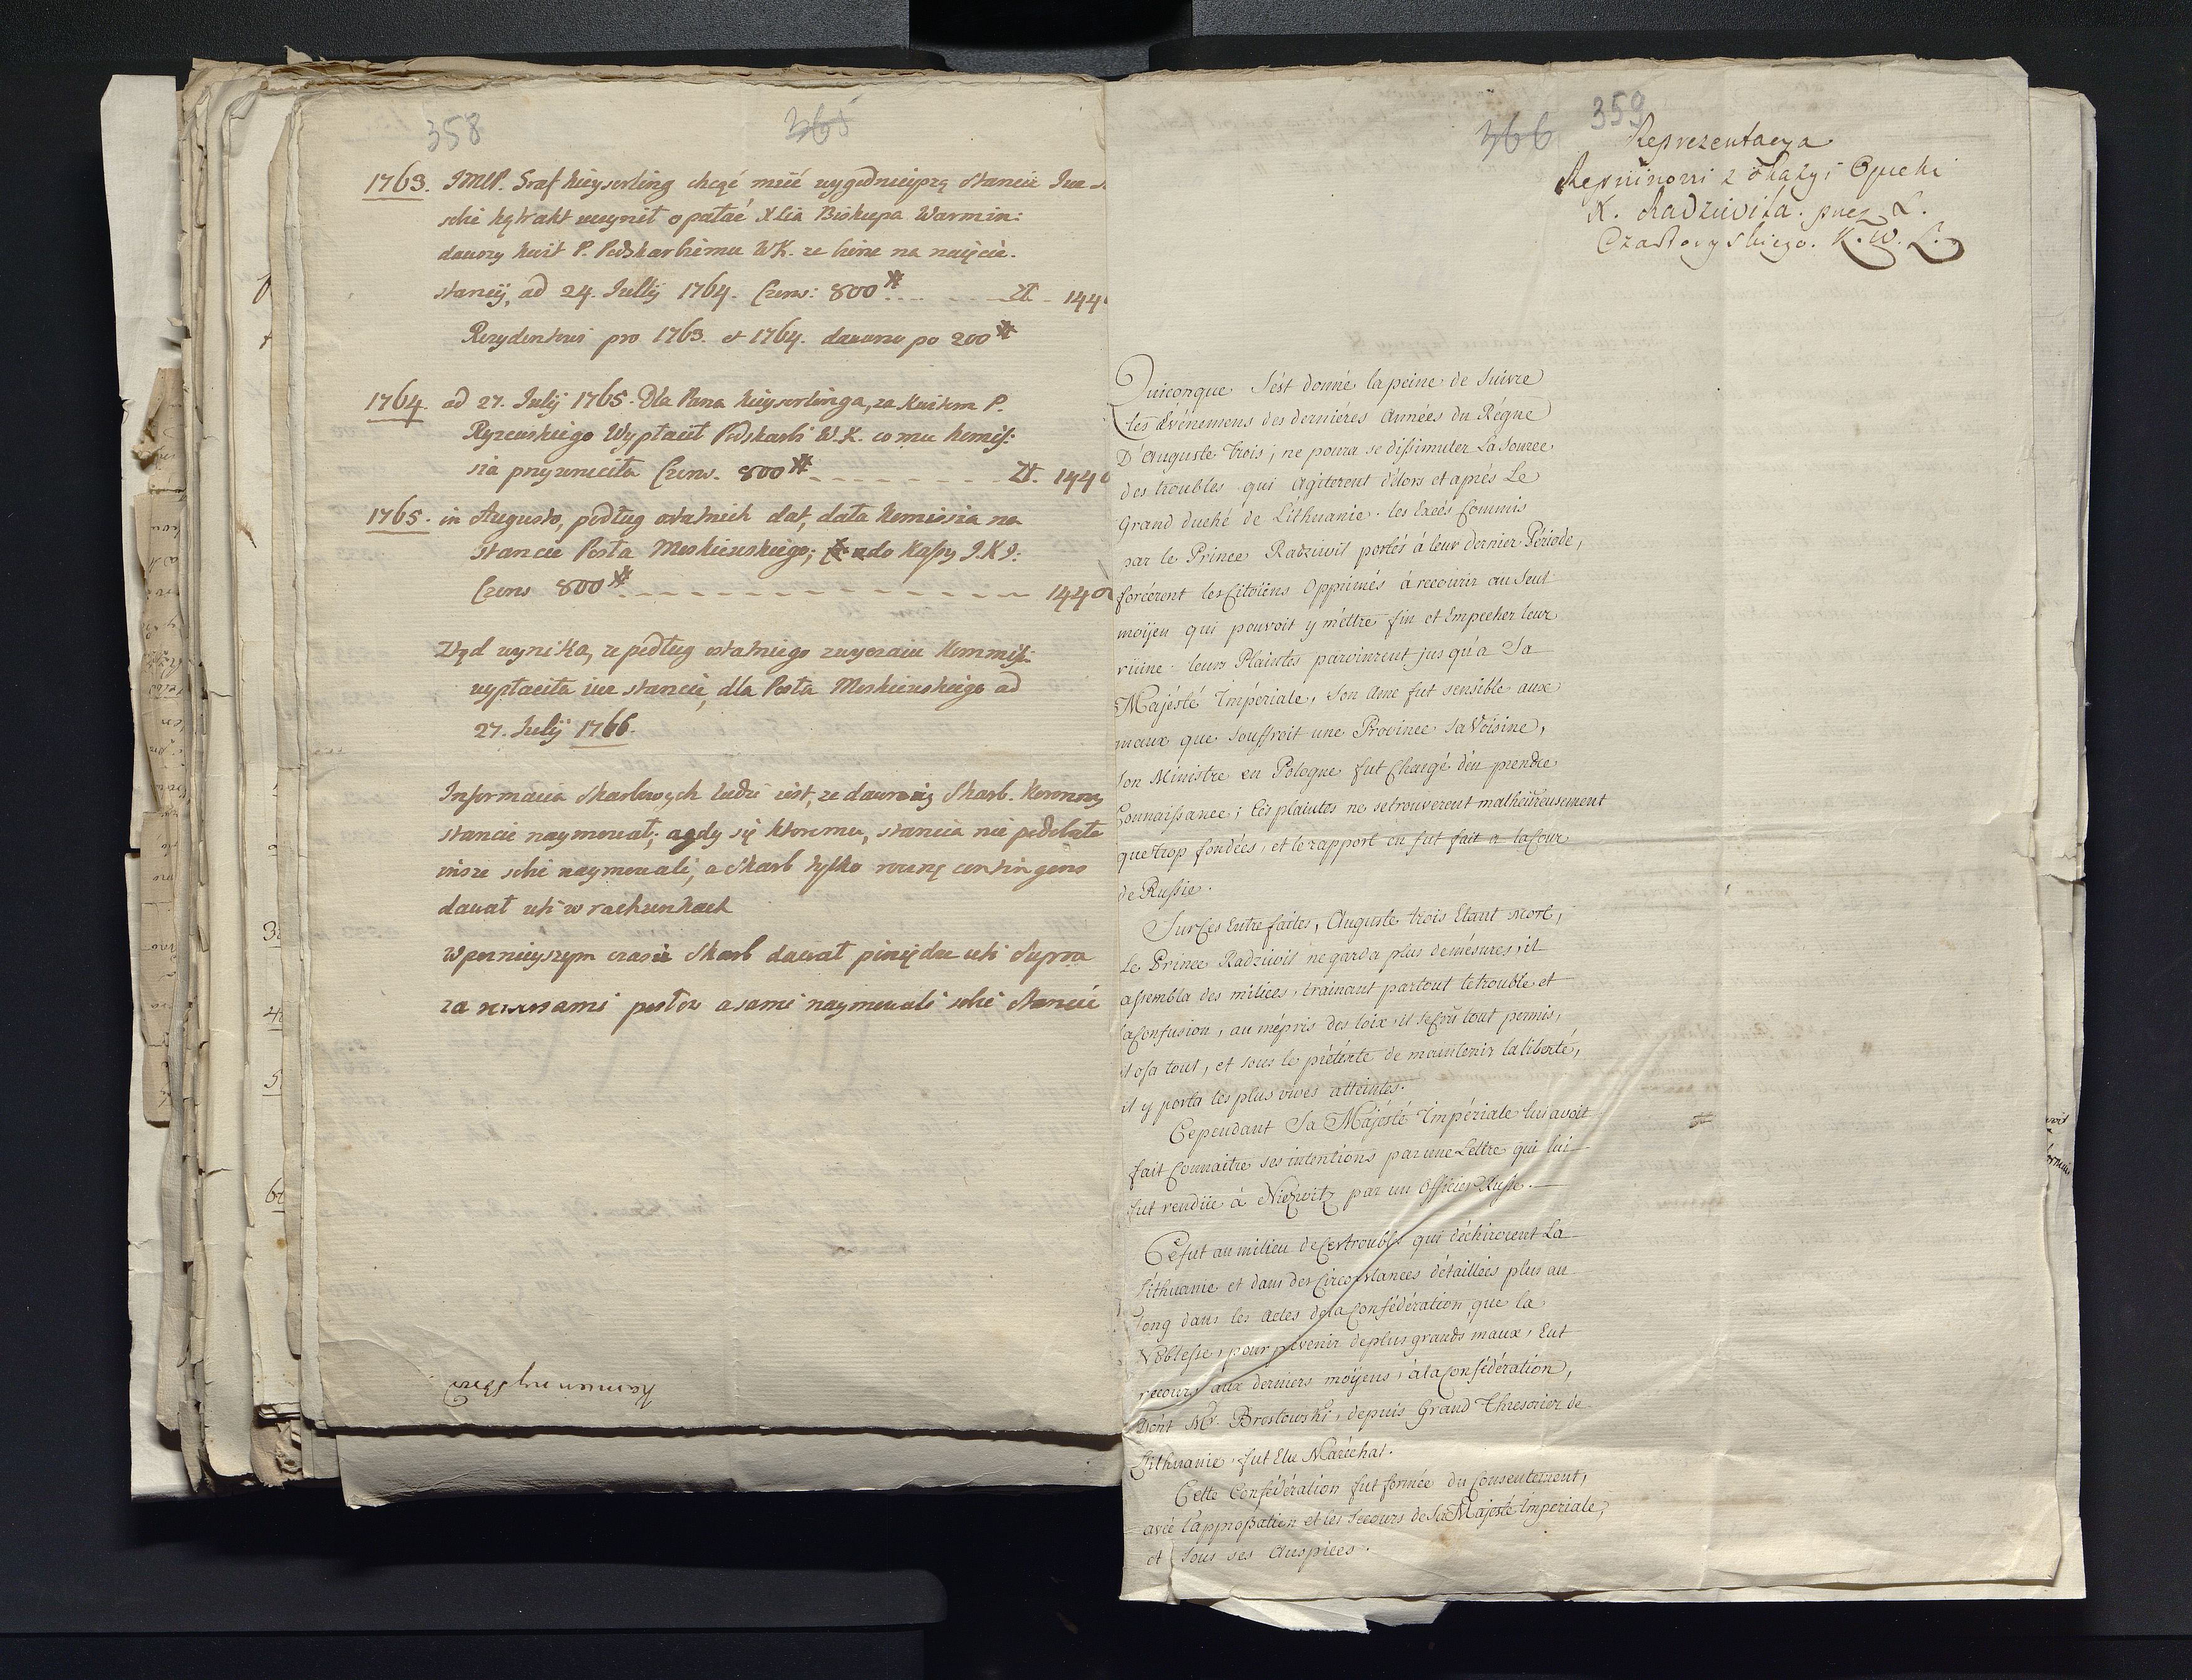 358
365
1763. JMP. Graf Keyserling chcąc mieć wygodnieyszą stancie Sam
sobie kątrakt uczynił o pałac Xcia Biskupa Warmin:
dawszy kwit P. Podskarbiemu WK. ze bierze na naięcie
stancij, ad 24. Julij 1764. Czerw: 800# Zł - 1440
Rezydentowi pro 1763. et 1764. dawano po 200#
1764. ad 27. Julij 1765. Dla Pana Keyserlinga, za kwitem P.
Rzewuskiego Wypłacił Podskarbi W.K. co mu komiss:
sia przyznaciła Czerw. 800# Zł. 1440
1765. in Augusto, podług ostatnich dat, dała komissia na
stancie Posła Moskiewskiego; do Kassy J.K.
Czerw 800# 1440
Ztąd wynika, ze podług ostatniego zwyczaiu Kommiss:
wypłaciła iuz stancie, dla Posła Moskiewskiego ad
27. Julij 1766.
Informacia Skarbowych ludzi iest, ze dawniey Skarb. Koronny
stancie naymował; a gdy się ktoremu, stancia nie podobała
insze sobie naymowali, a Skarb tylko roczny contingens
dawał uti w rachunkach
w pernieyszym czasie Skarb dawał pieniądze uti Supra
za kwitami posłow a sami naymowali sobie stancie
359
366
Reprezentacya
Repninowi z okazyi Opieki
X. Radziwiła. przez X.
Czartoryskiego. K. W. L.
Quiconque s'est donné la peine de suivre
les Evénemens des derniéres Années du Régne
D'Auguste trois, ne poura se dissimuler La Source
des troubles qui Agiterent d'élors et aprés Le
Grand duché de Lithuanie. les Excés Commis
par le Prince Radziwil portés à leur dernier Période,
forcérent les Citoïens Opprimés à recourir au Seul
moïjen qui pouvoit y mettre fin et Empecher leur
ruine. leurs Plaintes parvinrent jusqu'à Sa
Majésté Impériale, Son Ame fut sensible aux
maux que souffroit une Province sa Voisine,
Son Ministre en Pologne fut Chargé d'en prendre
Connaissance; Cés plaintes ne se trouverent malheureusement
que trop fondées, et le rapport en fut fait a la Cour
de Russie.
Sur Ces Entre faites, Auguste trois Etant Mort,
Le Prince Radziwil ne garda plus de mésures, il
assembla des milices, trainant partout le trouble et
la Confusion, au mépris des loix, il se Crû tout permis,
il osa tout, et sous le prétexte de maintenir la liberté,
il y porta les plus vives atteintes.
Cependant Sa Majésté Impériale lui avoit
fait Connaitre ses intentions par une Lettre qui lui
fut rendüe à Nieswitz par un Officier Russe.
Ce fut au milieu de Ces troubles qui déchirerent La
Lithuanie et dans des Circonstances détaillées plus au
long dans les Actes de la Confédération, que la
Noblesse, pour prévenir de plus grands maux, Eut
recours aux derniers moÿens, à la Confédération,
Dont Mr. Brostowski, depuis Grand Thresorier de
Lithuanie, fut Elu Maréchal.
Cette Confédération fut formée du Consentement,
avéc l'approbation et les Secours de Sa Majésté Imperiale,
et sous ses Auspices.